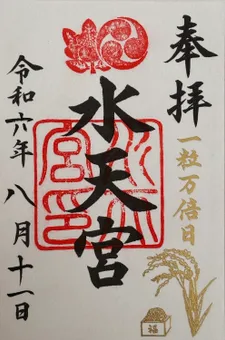 奉拝
一粒万倍日
水天宮
水天宮印
令和六年八月十一日
福